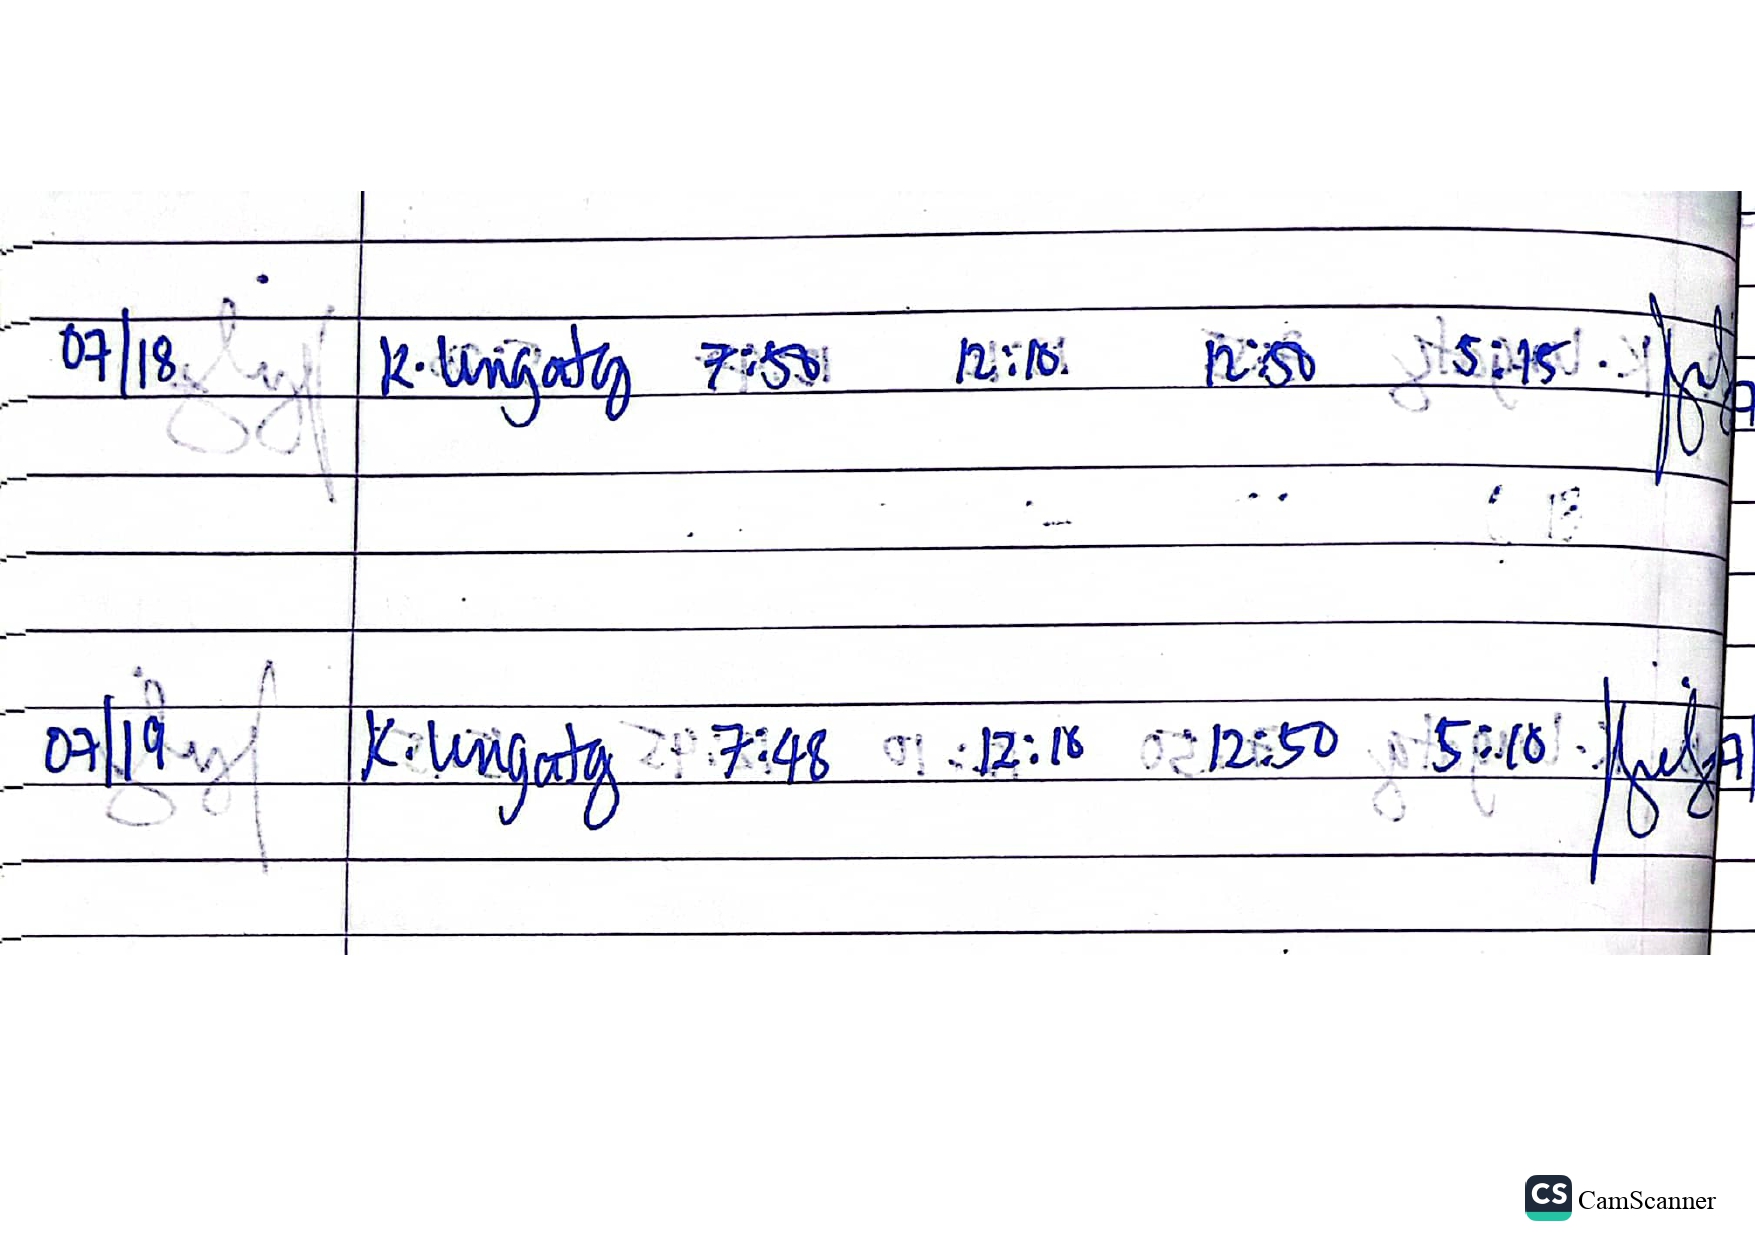 07/18 K. Lingatg 7:50 12:10 12:50 5:15
07/19 K. Lingatg 7:48 12:10 12:50 5:10
CS CamScanner